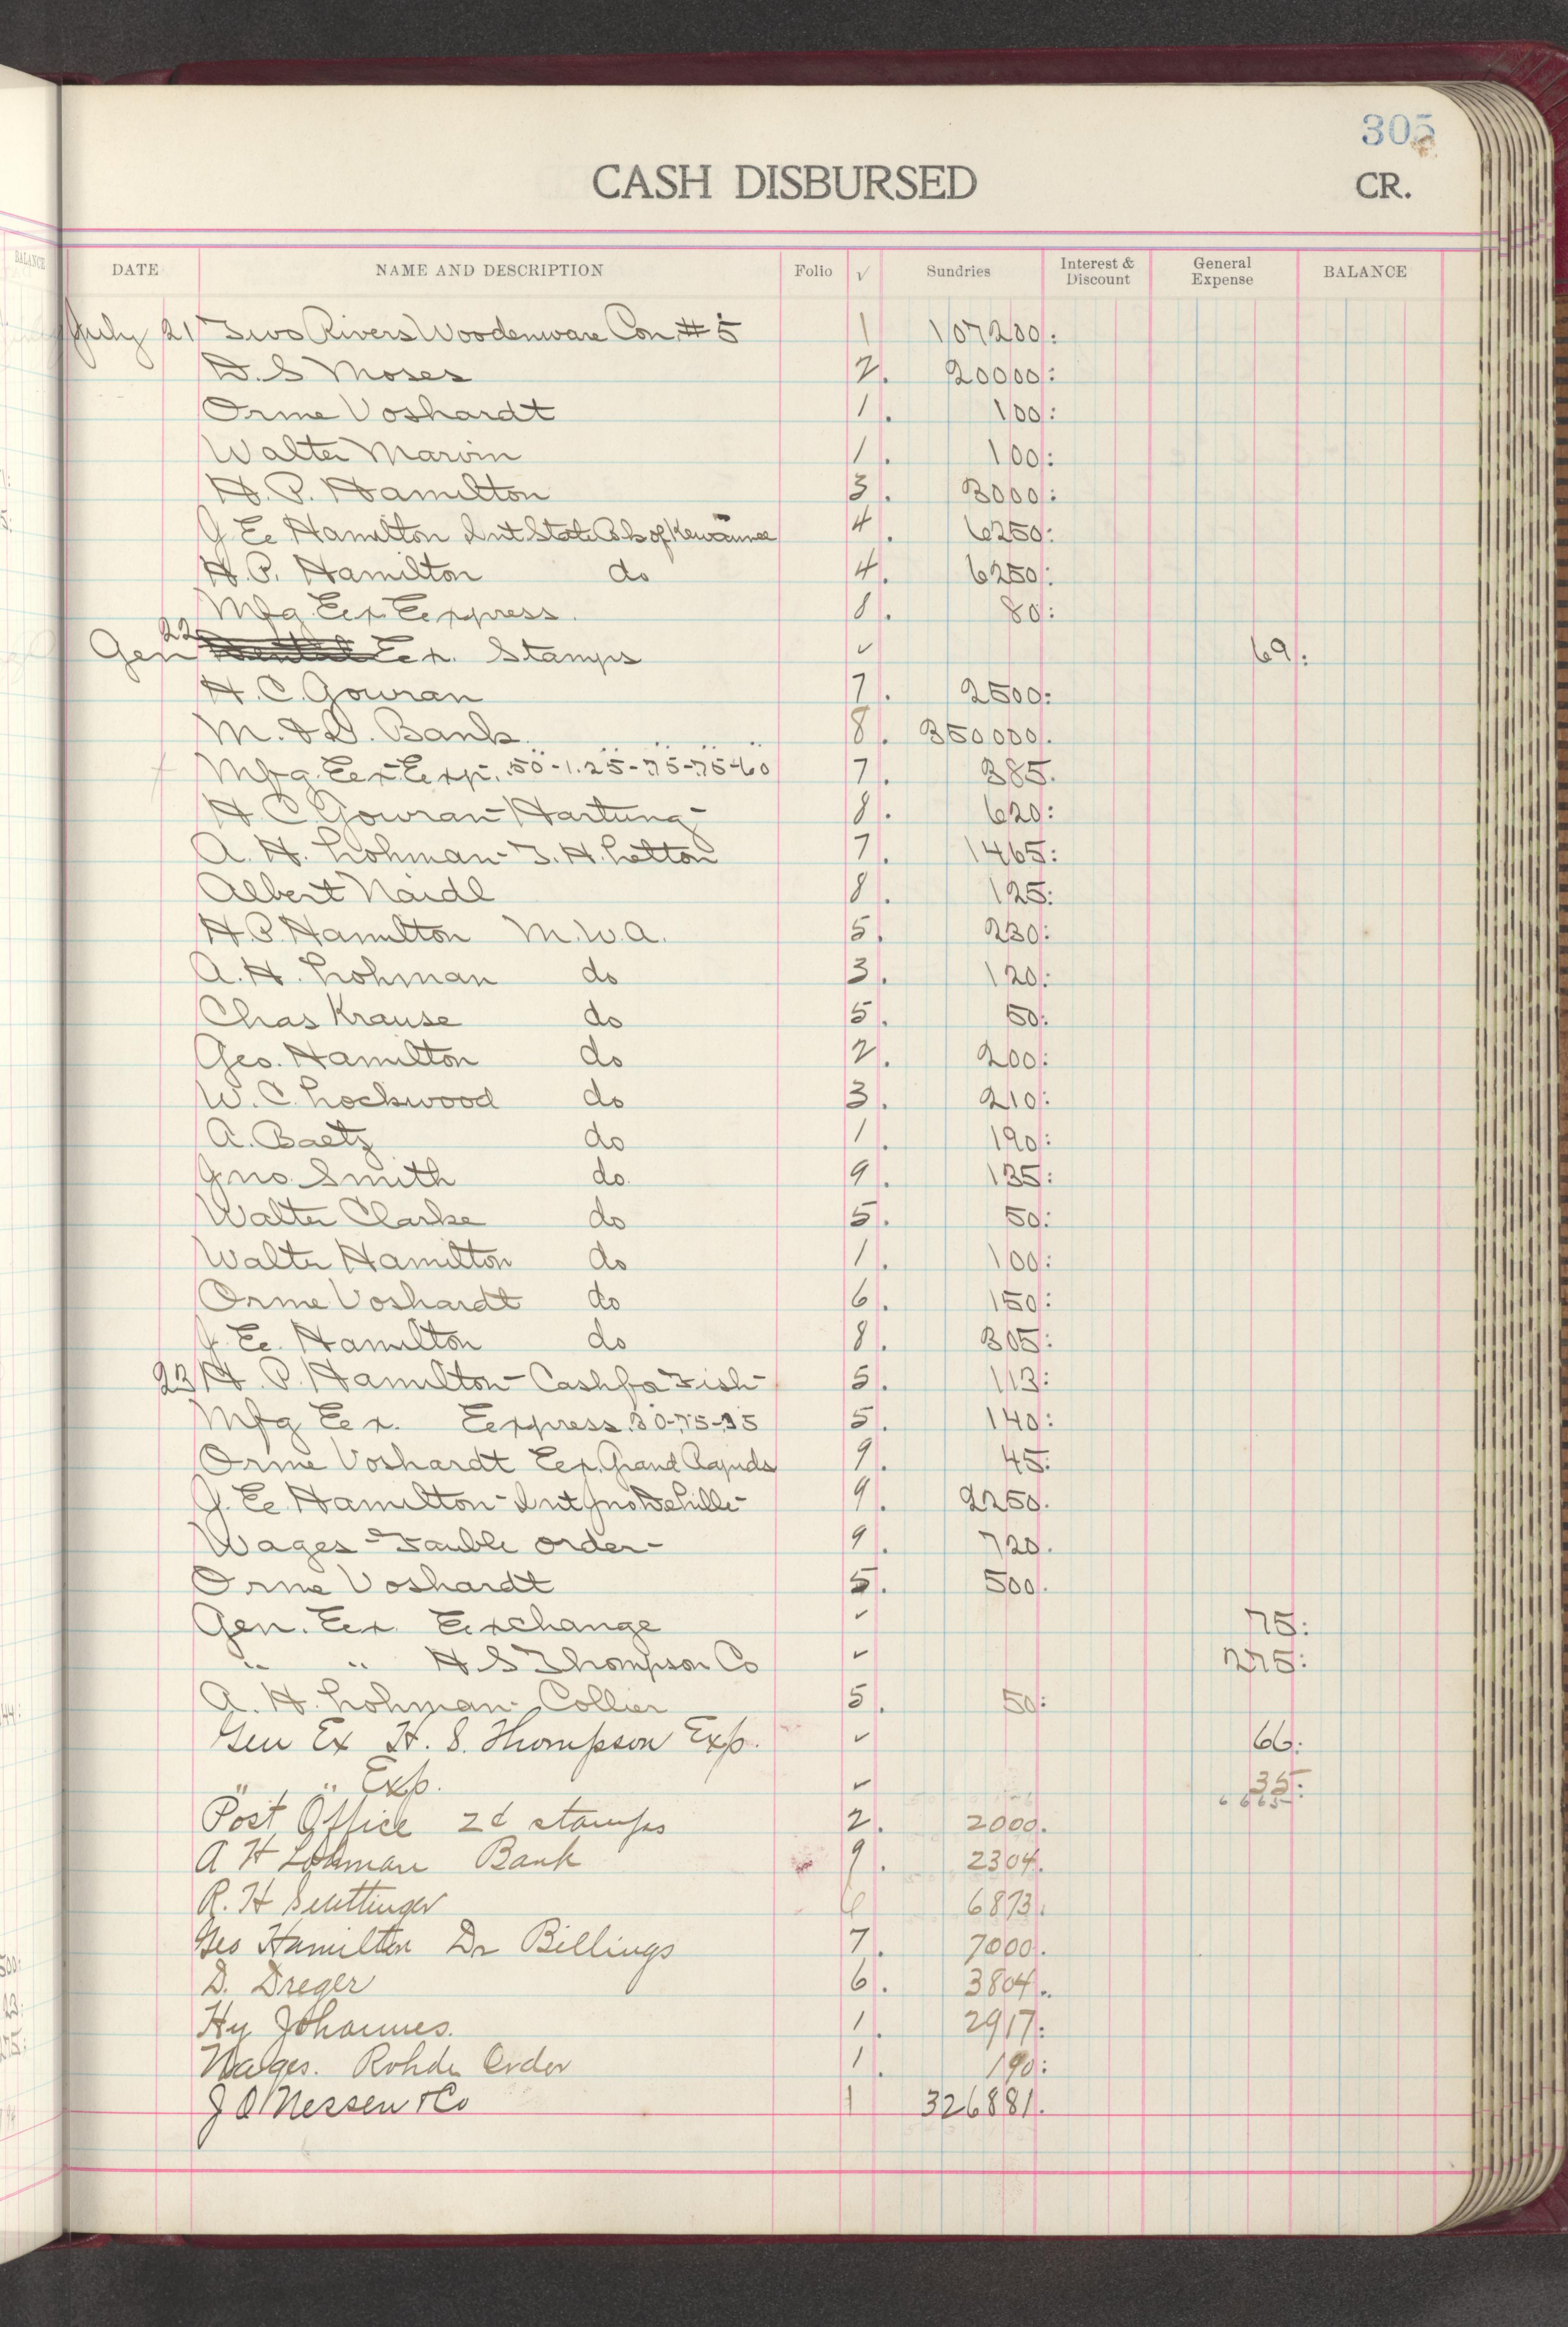 305
CASH DISBURSED CR.
DATE NAME AND DESCRIPTION Folio √ Sundries Interest & Discount General Expense BALANCE
July 21 Two Rivers Woodenware Con. #5 1 107200:
D. S Moses 2. 20000:
Orme Voshardt 1. 100:
Walter Marvin 1. 100:
H. P. Hamilton 3. 3000:
J E Hamilton Int State Bk of Kewaunee 4. 6250:
H. P. Hamilton do 4. 6250:
Mfg Ex Express. 8. 80:
22
Gen Ex. Stamps ✓ 69:
H. C. Gowran 7. 2500:
M. & S. Bank 8. 350000.
Mfg. Ex Exp. .50-1.25-.75-.75-60 7. 385.
H C Gowran-Hartung- 8. 620:
A. H. Lohman- T. H. Letton 7. 1465:
Albert Naidl 8. 125:
H. P. Hamilton M. W. A. 5. 230:
A. H. Lohman do 3. 120:
Chas Krause do 5. 50:
Geo. Hamilton do 2. 200:
W. C. Lockwood do 3. 210:
A. Baetz do 1. 190:
Jno. Smith do. 9. 135:
Walter Clarke do 5. 50:
Walter Hamilton do 1. 100:
Orme Voshardt do 6. 150:
J. E. Hamilton do 8. 305:
23 H. P. Hamilton- Cash for Fish- 5. 113:
Mfg Ex. Express .30-.75-.35 5. 140:
Orme Voshardt Ex. Grand Rapids 9. 45:
J. E Hamilton- Int Jno 9. 2250.
Wages - Tauble order- 9. 720.
Orme Voshardt 5. 500.
Gen. Ex. Exchange ✓ 75:
" " H S Thompson Co ✓ 275:
A. H. Lohman- Collier 5. 50:
Gen Ex H. S. Thompson Exp. ✓ 66:
" " Exp. ✓ 35:
Post Office 2¢ stamps 2. 2000.
A H Lohman Bank 9. 2304.
R. H 6873.
Geo Hamilton Dr Billings 7. 7000.
D. Dreger 6. 3804.
Hy Johannes. 1. 2917:
Wages. Rohde Order 1. 190:
J O Nessen & Co 1 326881.